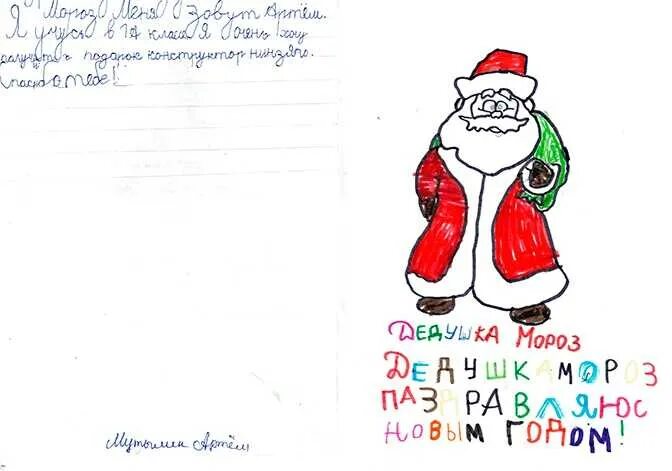 Мороз Меня Зовут Артём.
Я учусь в 1А класса Я очень хочу
получить подарок конструктор ниндзяго.
Спасибо тебе!
Мутылин Артём
ДЕДУШКА МОРОЗ
ДЕДУШКА МОРОЗ
ПАЗДРАВЛЯЮ С
НОВЫМ ГОДОМ!